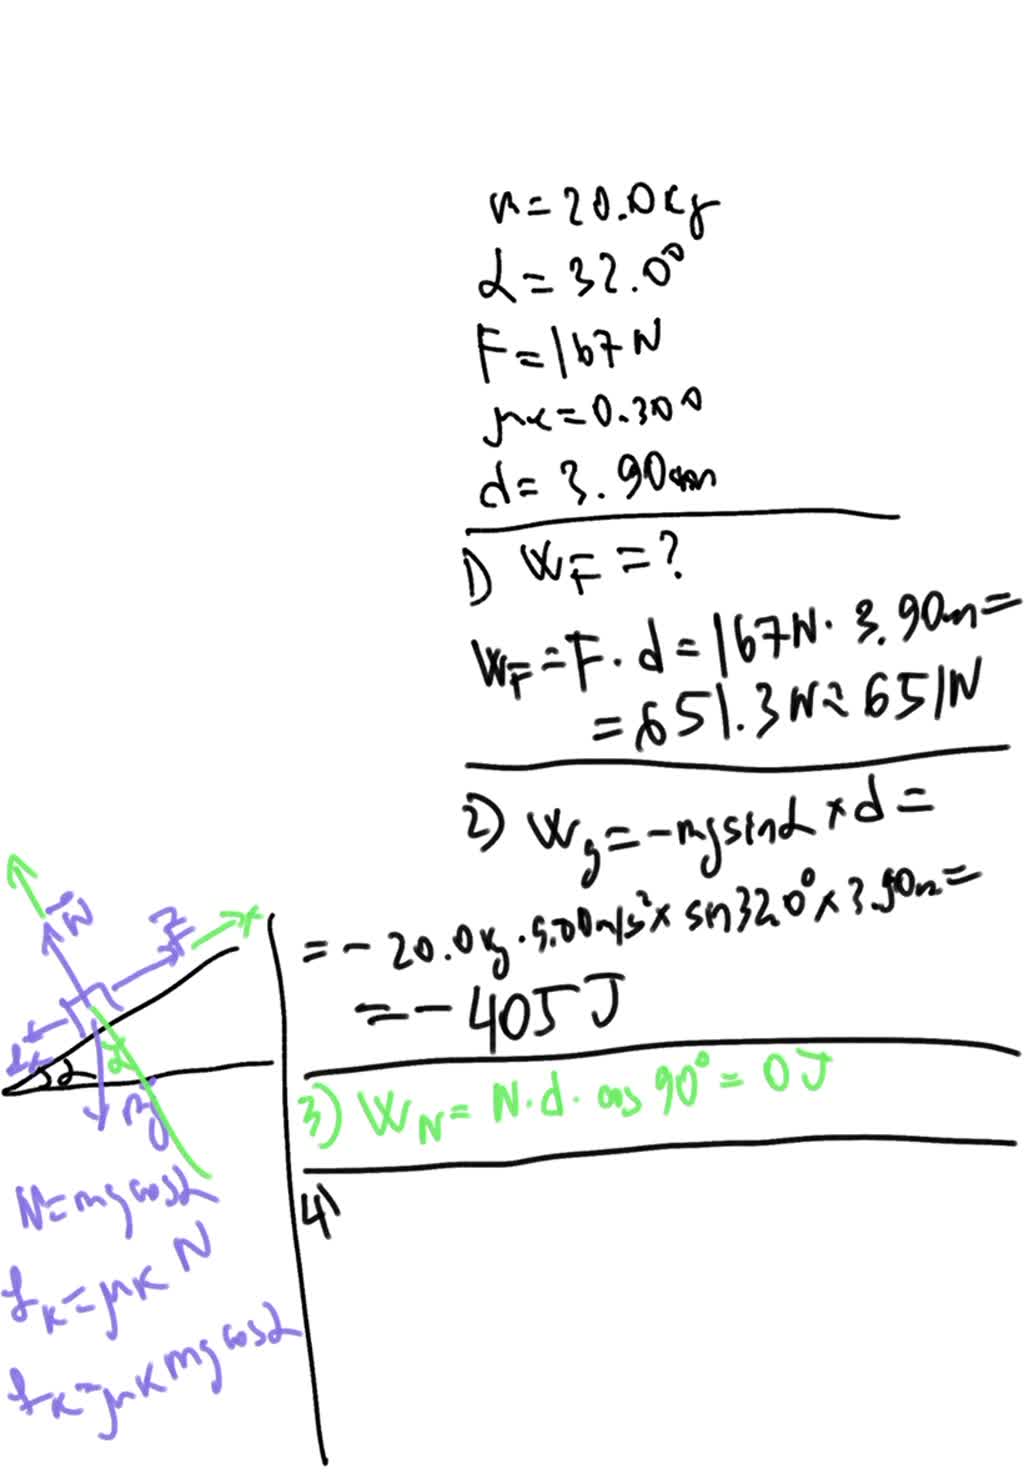 m=20.0kg
α=32.0°
F=167N
μk=0.300
d=3.90m
1) WF=?
WF=F·d=167N·3.90m=
=651.3N≈651N
2) Wg=-mgsinα×d=
=-20.0kg·9.80m/s²×sin32.0°×3.90m=
=-405J
3) WN=N·d·cos90°=0J
4)
N
F
x
fk
α
α
mg
N=mgcosα
fk=μkN
fk=μkmgcosα